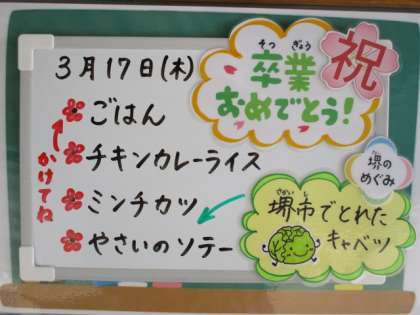 3月17日(木)
ごはん
チキンカレーライス
ミンチカツ
やさいのソテー
かけてね
そつ ぎょう
卒業
おめでとう!
祝
さかい
堺の
めぐみ
さかい し
堺市でとれた
キャベツ